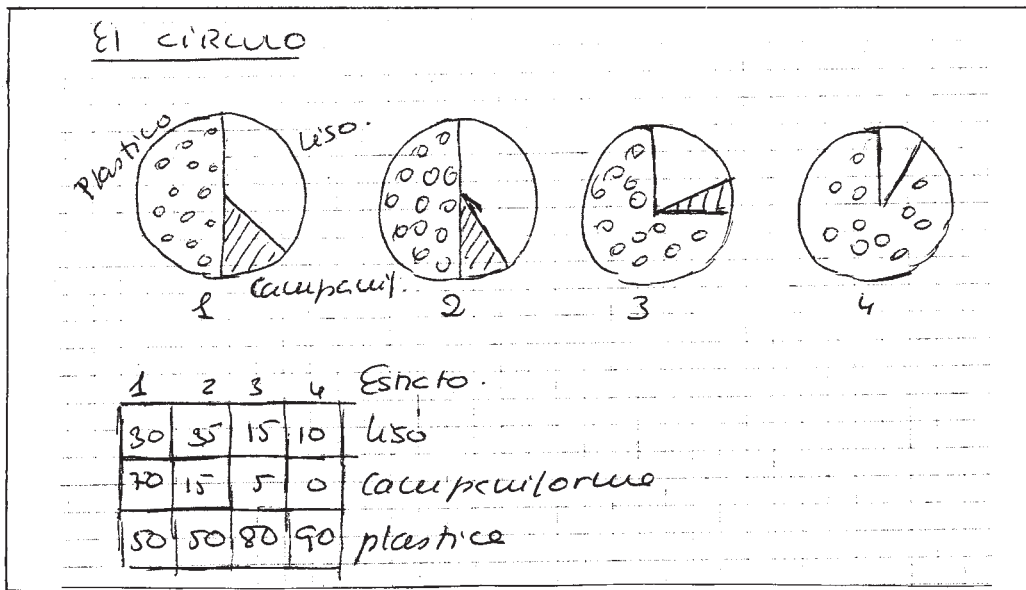 El CÍRCULO
Plastico
Liso.
Campanif.
1 2 3 4
1 2 3 4 Estrato.
30 35 15 10 liso
70 15 5 0 campaniforme
50 50 80 90 plastica